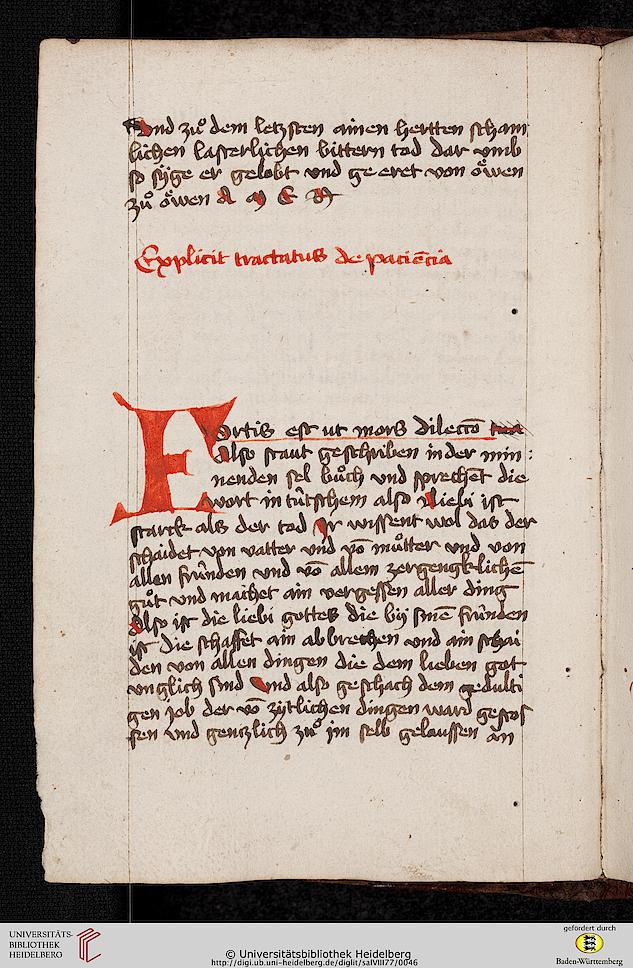 Vnd zuͦ dem letzsten ainen hertten scham
lichen lasterlichen bittern tod dar vmb
so syge er gelobt vnd ge eret von oͤwen
zuͦ oͤwen A M E N
Explicit tractatus de paciēcia
Fortis est ut mors dilectō
Also staut geschriben in der min
nenden sel buͦch vnd sprechēt die
wort in tútschem also Die liebi ist
starck als der tod Ir wissent wol das der
schaidet von vatter vnd vō muͦtter vnd von
allen frúnden vnd vō allem zergengklichē
guͦt vnd machet ain vergessen aller ding
Also ist die liebi gottes die bÿ sinē frúnden
ist die schaffet ain ab brechen vnd ain schai
den von allen dingen die dem lieben got
vnglich sind Vnd also geschach dem gedulti
gen job der vō zÿtlichen dingen ward gestos
sen vnd gentzlich zuͦ im selb gelaussen an
UNIVERSITÄTS-
BIBLIOTHEK
HEIDELBERG
© Universitätsbibliothek Heidelberg
http://digi.ub.uni-heidelberg.de/diglit/salVIII77/0046
gefördert durch
Baden-Württemberg